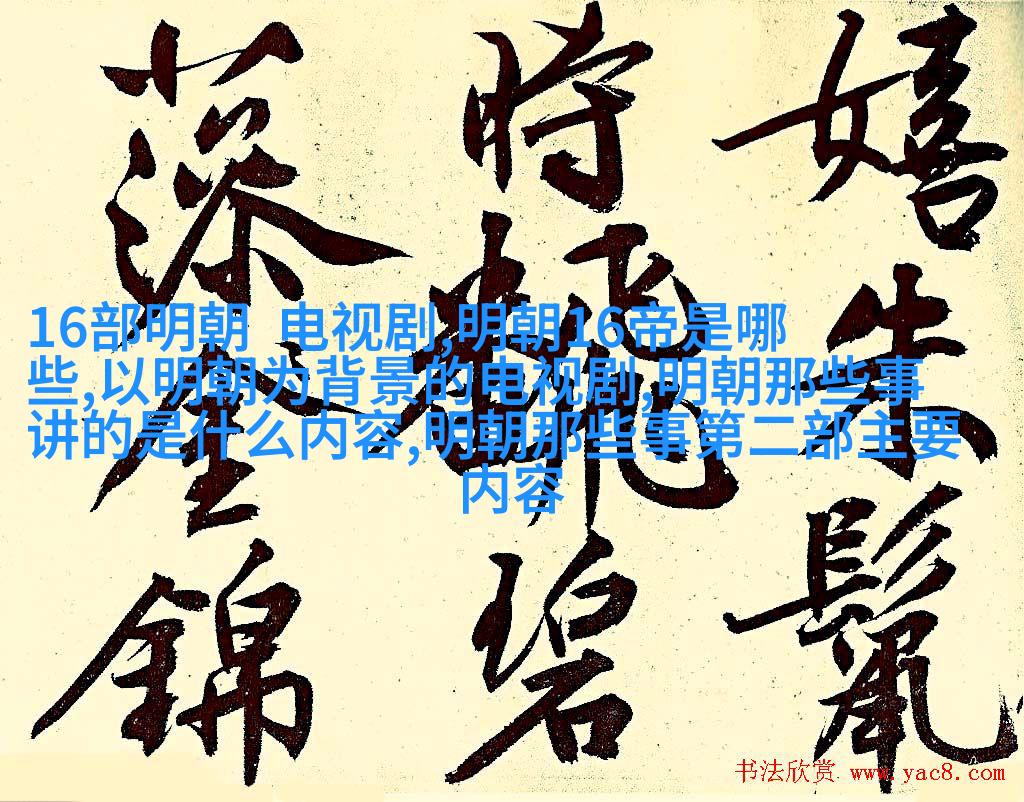 嬉朱鬣
時
碧
藻
錦
16部明朝 电视剧,明朝16帝是哪
些,以明朝为背景的电视剧,明朝那些事
讲的是什么内容,明朝那些事第二部主要
内容
书法欣赏 www.yac8.com